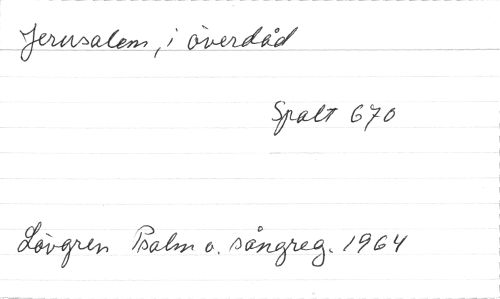 Jerusalem, i överdåd
Spalt 670
Lövgren Psalm o. sångreg. 1964